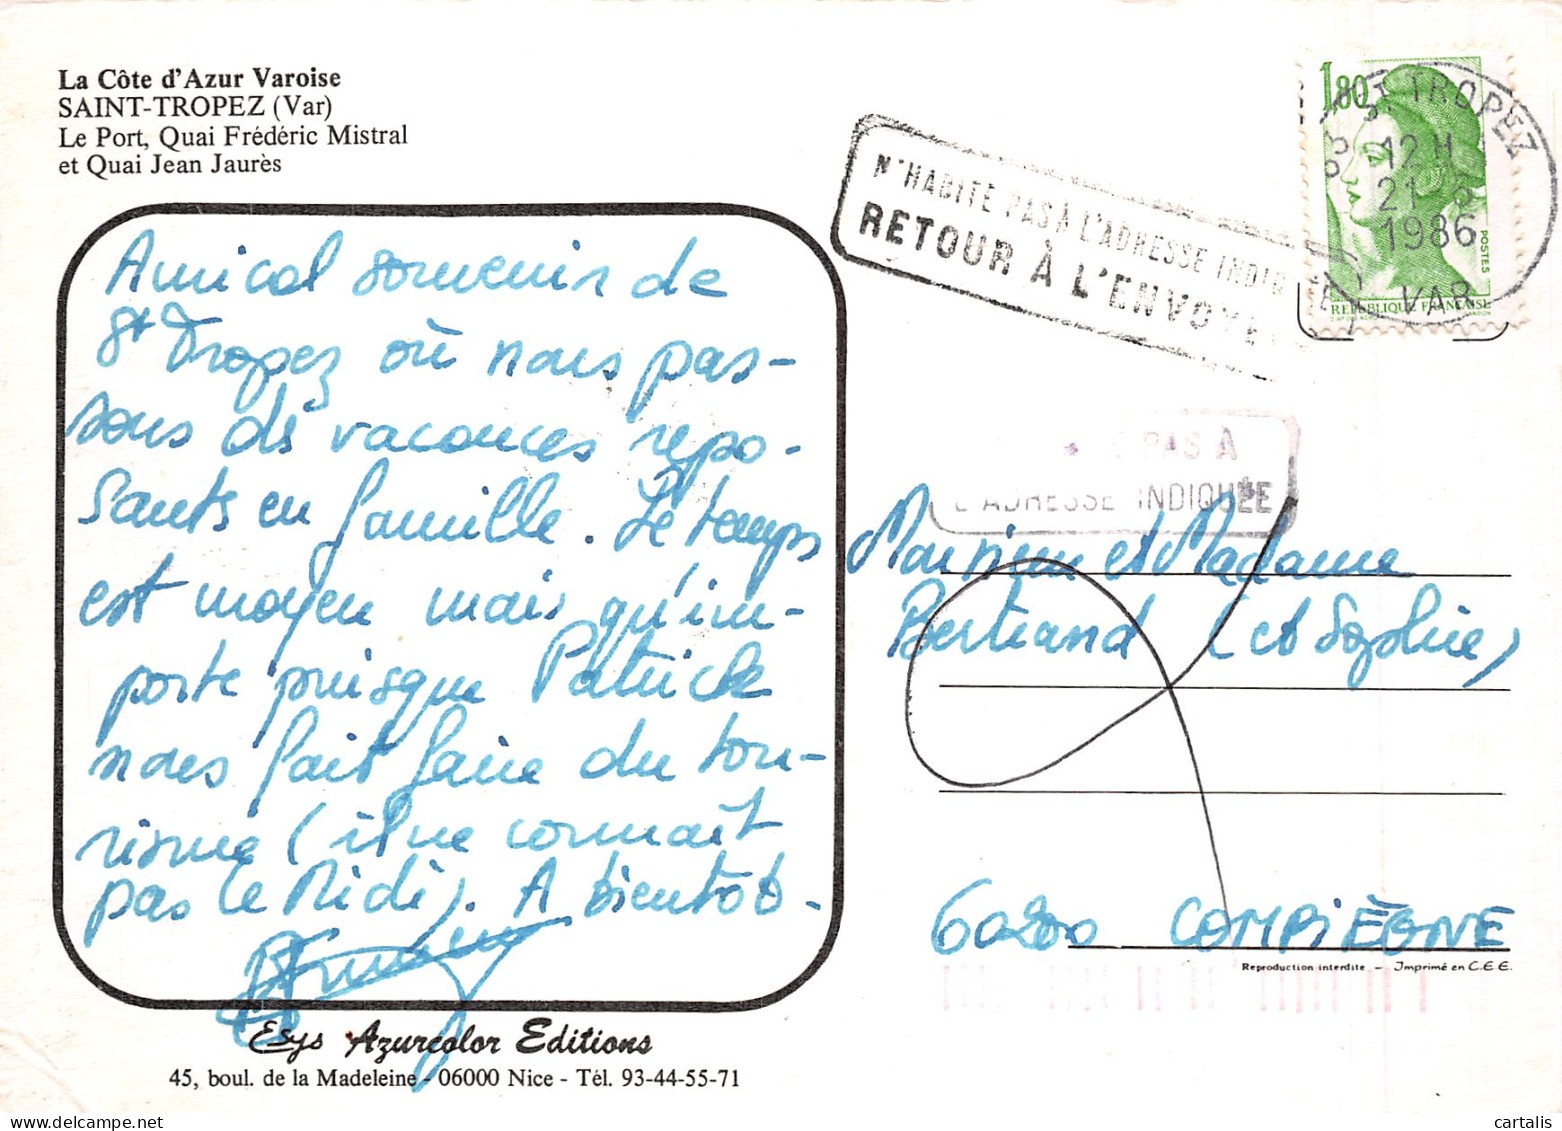 La Côte d'Azur Varoise
SAINT-TROPEZ (Var)
Le Port, Quai Frédéric Mistral
et Quai Jean Jaurès
Amical souvenir de
St Tropez où nous pas-
sons des vacances repo-
santes en famille. Le temps
est moyen mais qu'im-
porte puisque Patrick
nous fait faire du tou-
risme (il ne connaît
pas le Midi). A bientôt.
Esys Azurcolor Editions
45, boul. de la Madeleine - 06000 Nice - Tél. 93-44-55-71
N'HABITE PAS À L'ADRESSE INDIQ
RETOUR À L'ENVOYE
1,80
POSTES
REPUBLIQUE FRANÇAISE
ST TROPEZ
12 H
21
1986
VAR
PAS À
L'ADRESSE INDIQUÉE
Monsieur et Madame
Bertrand (et Sophie)
60200 COMPIÈGNE
Reproduction interdite - Imprimé en C.E.E.
cartalis